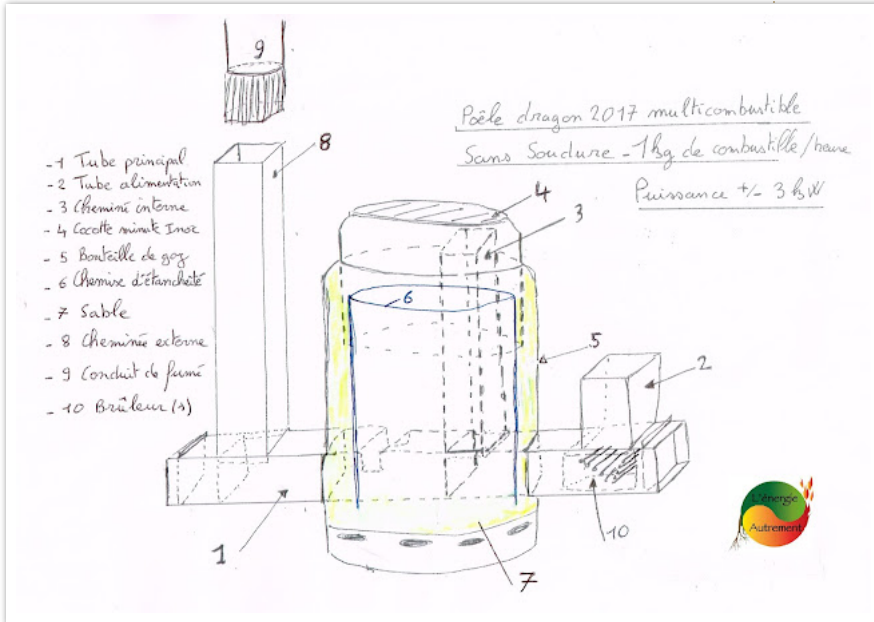 9
8
Poêle dragon 2017 multicombustible
Sans Soudure - 1 kg de combustible/heure
Puissance +/- 3 kW
- 1 Tube principal
- 2 Tube alimentation
- 3 Cheminé interne
- 4 Cocotte minute Inox
- 5 Bouteille de gaz
- 6 Chemise d'étanchéité
- 7 Sable
- 8 Cheminée externe
- 9 Conduit de fumé
- 10 Brûleur(s)
4
3
6
5
2
1
10
7
L'énergie
Autrement